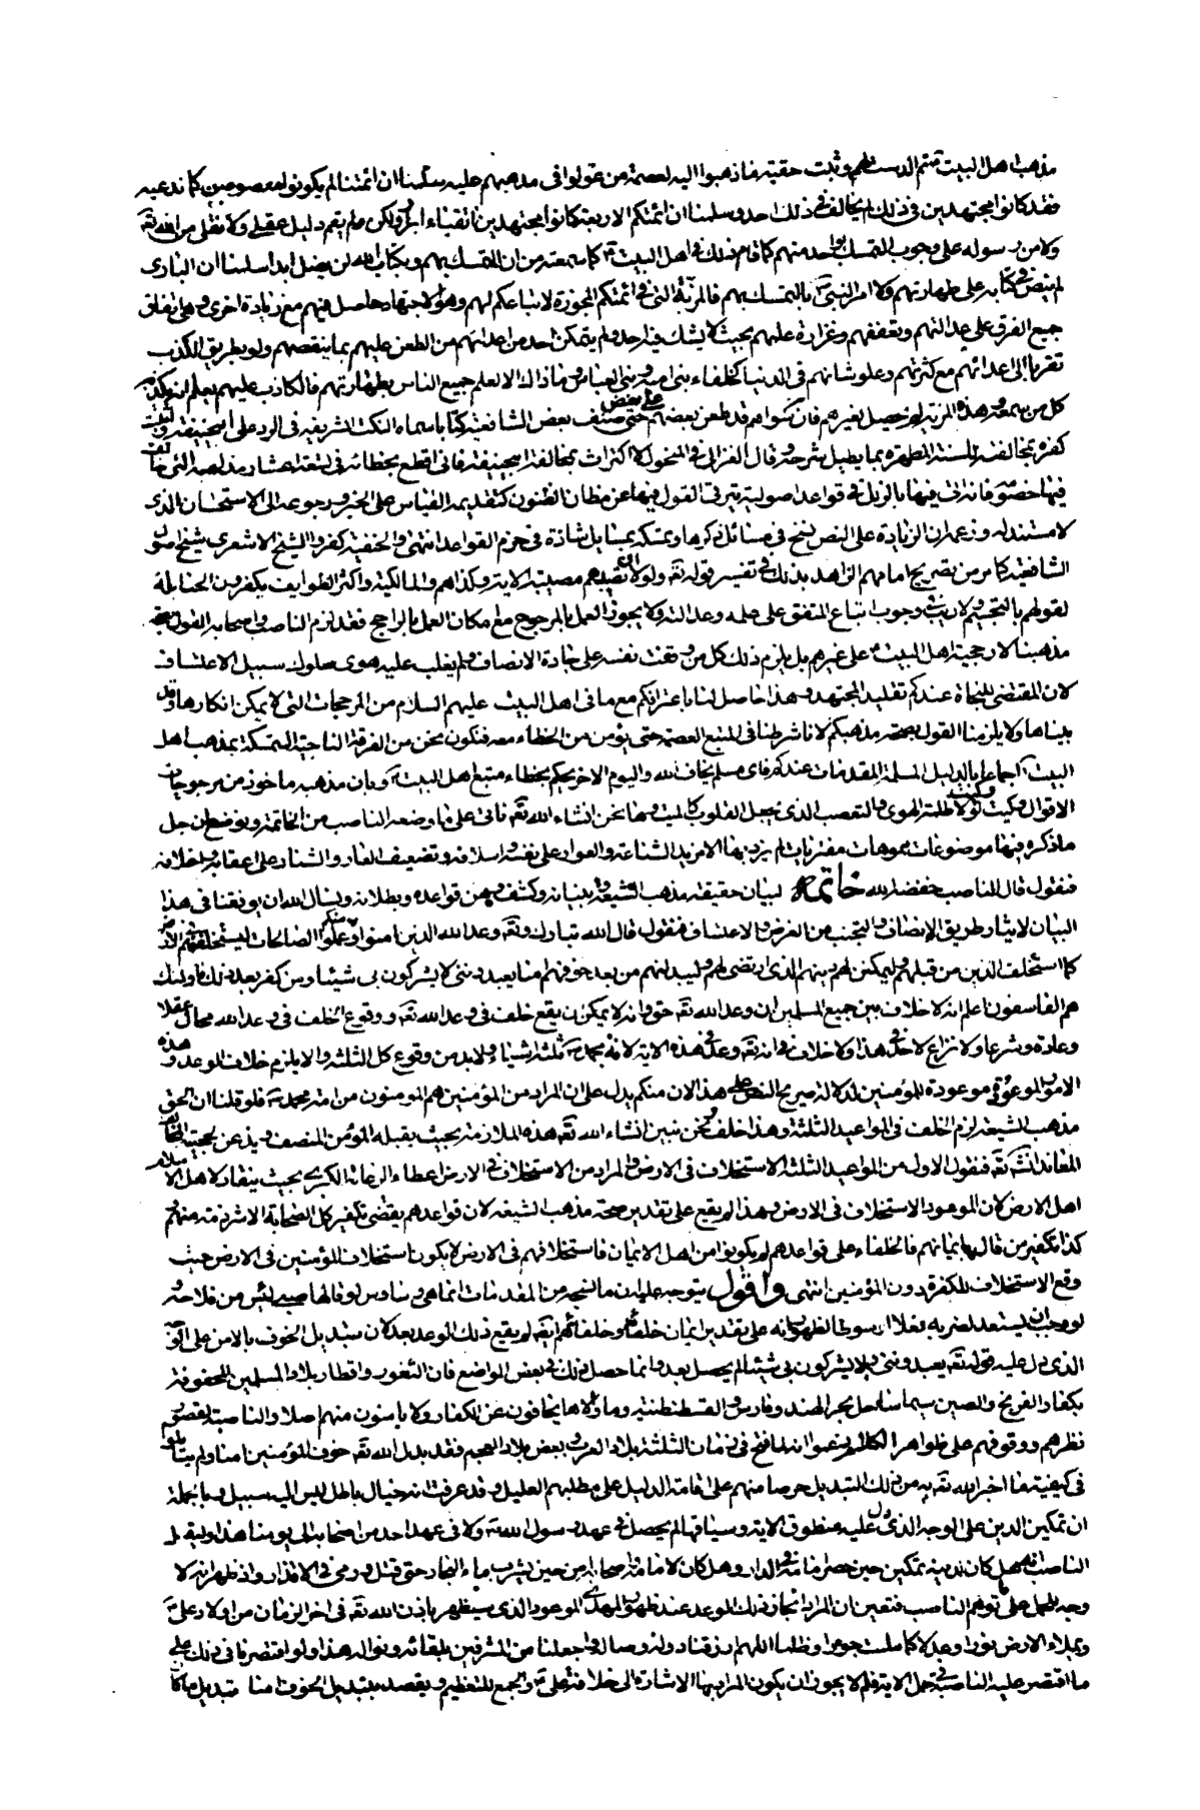 مذهب اهل البيت فتم الدست لهم وثبت حقية ما ذهبوا اليه لعصمة من عولوا في مذهبهم عليه سلمنا ان ائمتنا لم يكونوا معصومين كما ندعيه
فقد كانوا مجتهدين في ذلك لم يخالف في ذلك احد وسلمنا ان ائمتكم الاربعة كانوا مجتهدين اتقياء ولكن لم يقم دليل عقلي ولا نقلي من الله تع
ولا من رسوله على وجوب التمسك بواحد منهم كما قام ذلك في اهل البيت كما سمعته من ان التمسك بهم وبكتاب الله لن يضل ابدا سلمنا ان الباري
لم ينص في كتابه على طهارتهم ولا امر النبي بالتمسك بهم فالمرتبة التي في ائمتكم المجوزة لاتباعكم لهم وهو الاجتهاد حاصل فيهم مع زيادة اخرى وهي اتفاق
جميع الفرق على عدالتهم وتعففهم وغزارة علمهم بحيث لا يشك فيه احد ولم يتمكن احد من اعدائهم من الطعن عليهم بما ينقصهم ولو بطريق الكذب
تقربا الى اعدائهم مع كثرتهم وعلو شانهم في الدنيا كخلفاء بني امية وبني العباس وما ذاك الا لعلم جميع الناس بطهارتهم فالكاذب عليهم يعلم انه يكذبه
كل من سمعه وهذه المرتبة لم تحصل لغيرهم فان كثيرا منهم قد طعن بعضهم على بعض حتى صنف بعض الشافعية كتابا سماه النكت الشريفة في الرد على ابي حنيفة
كفره بمخالفته للسنة المطهرة بما يطول شرحه وقال الغزالي في المنخول لا اكتراث بمخالفة ابي حنيفة فاني اقطع بخطائه في تسعة اعشار مذهبه التي خالف
فيها خصومه فانه اتى فيها بالزلل في قواعد اصولية يترقى القول فيها عن مظان الظنون كتقديمه القياس على الخبر ورجوعه الى الاستحسان الذي
لا مستند له وزعم ان الزيادة على النص نسخ في مسائل ذكرها وتمسكه بمسايل شاذة في خرم القواعد انتهى والحنفية كفروا الشيخ الاشعري شيخ اصول
الشافعية كما مر من تصريح امامهم الزاهد بذلك في تفسير قوله تع ولولا ان تصيبهم مصيبة الاية وكذا هم والمالكية واكثر الطوايف يكفرون الحنابلة
لقولهم بالتجسيم ولا ريب في وجوب اتباع المتفق على علمه وعدالته ولا يجوز العمل بالمرجوح مع امكان العمل بالراجح فقد لزم الناصب واصحابه القول بصحة
مذهبنا لارجحية اهل البيت على غيرهم بل يلزم ذلك كل من وقفت نفسه على جادة الانصاف ولم يغلب عليه هوى سلوك سبيل الاعتساف
لان المقتضي للنجاة عندكم تقليد المجتهد وهذا حاصل لنا باعترافكم مع ما في اهل البيت عليهم السلام من المرجحات التي لا يمكن انكارها وقد
بيناها ولا يلزمنا القول بصحة مذهبكم لانا شرطنا في المتبع العصمة حتى يؤمن من الخطاء معه فنكون نحن من الفرقة الناجية المتمسكة بمذهب اهل
البيت اجماعا بالدليل المسلم المقدمات عندكم فاي مسلم يخاف الله واليوم الاخر يحكم بخطاء متبع اهل البيت وبان مذهبه ماخوذ من مرجوحات
الاقوال وكيت وكيت لولا ظلمة الهوى والتعصب الذي يجعل القلوب كالميت وها نحن انشاء الله تع ناتي على ما وضعه الناصب من الخاتمة ونوضح ان جل
ما ذكره فيها موضوعات مموهات مفتريات لم يزد بها الا مزيد الشناعة والعوار على نفسه واسلافه وتضعيف العار والشنار على اعقابه واخلافه
فنقول قال الناصب خفضه الله خاتمة لبيان حقيقة مذهب الشيعة وبيانه وكشف وهن قواعده وبطلانه ونسال الله ان يوفقنا في هذا
البيان لايثار طريق الانصاف والتجنب من الغرض والاعتساف فنقول قال الله تبارك وتع وعد الله الذين امنوا منكم وعملوا الصالحات ليستخلفنهم في الارض
كما استخلف الذين من قبلهم وليمكنن لهم دينهم الذي ارتضى لهم وليبدلنهم من بعد خوفهم امنا يعبدونني لا يشركون بي شيئا ومن كفر بعد ذلك فاولئك
هم الفاسقون اعلم انه لا خلاف بين جميع المسلمين ان وعد الله تع حق وانه لا يمكن ان يقع خلف في وعد الله تع ووقوع الخلف في وعد الله محال عقلا
وعادة وشرعا ولا نزاع لاحد في هذا ولا خلاف في انه تع وعد في هذه الاية لامة محمد ثلثة اشياء ولا بد من وقوع كل الثلثة والا يلزم خلاف الوعد وهذه
الامور الموعودة موعودة للمؤمنين لدلالة صريح النص على هذا لان منكم يدل على ان المراد من المؤمنين هم المؤمنون من امة محمد فلو قلنا ان الحق
مذهب الشيعة لزم الخلف في المواعيد الثلثة وهذا خلف ونحن نبين انشاء الله تع هذه الملازمة بحيث يقبله المؤمن المنصف ويذعن لحجيته
المعاند انشاء الله تع فنقول الاول من المواعيد الثلثة الاستخلاف في الارض والمراد من الاستخلاف في الارض اعطاء الزعامة الكبرى بحيث ينقاد لاهل الاسلام
اهل الارض لان الموعود الاستخلاف في الارض وهذا لم يقع على تقدير صحة مذهب الشيعة لان قواعدهم يقضي بتكفير كل الصحابة الا شرذمة منهم
كذا تكفير من قال بايمانهم فالخلفاء على قواعدهم لم يكونوا من اهل الايمان فاستخلافهم في الارض لا يكون استخلاف المؤمنين في الارض حيث
وقع الاستخلاف للكفرة دون المؤمنين انتهى واقول يتوجه عليه ان ما نسجه من المقدمات انما هي وساوس لو قالها صبي لئيس من فلاحه
لو وجب ان يستعد لضربه فعلا ارسوطا لظهور انه على تقدير ايمان خلفائه وخلفائهم ايضا لم يقع ذلك الوعد بعد لان تبديل الخوف بالامن على الوجه
الذي دل عليه قوله تع يعبدونني لا يشركون بي شيئا لم يحصل بعد وانما حصل ذلك في بعض المواضع فان الثغور واقطار بلاد المسلمين المحفوفة
بكفار الفرنج والصين سيما ساحل بحر الهند وفارس والقسطنطنية وما والاها يخافون عن الكفار ولا يامنون منهم اصلا والناصبة لقصور
نظرهم ووقوفهم على ظواهر الكلام زعموا انه لما فتح في زمان الثلثة بلاد العرب وبعض بلاد العجم فقد بدل الله تع خوف المؤمنين امنا ولم يتاملوا
في كيفية ما اخبر الله تع به من ذلك التبديل حرصا منهم على اقامة الدليل على مطلبهم العليل وقد عرفت انه خيال باطل ليس اليه سبيل وبالجملة
ان تمكين الدين على الوجه الذي دل عليه منطوق الاية وسياقها لم يحصل في عهد رسول الله ولا في عهد احد من اصحابه الى يومنا هذا وليقل
الناصب انه هل كان لدينه تمكين حين حصر امامه في الدار وهل كان لامامه واصحابه امن حين لم يشرب ماء البحار حتى قتل ورمي في الاقذار واذ ظهر انه لا
وجه للحمل على ما توهم الناصب فتعين ان المراد انجاز ذلك الوعد عند ظهور المهدي الموعود الذي سيظهر باذن الله تع في اخر الزمان من اولاد علي
ويملاء الارض نورا وعدلا كما ملئت جورا وظلما اللهم ارزقنا دولته وصاله واجعلنا من المشرفين بلقائه ونواله هذا ولو اقتصرنا في ذلك على
ما اقتصر عليه الناصب في حمل الاية فلم لا يجوز ان يكون المراد بها الاشارة الى خلافة علي والجمع للتعظيم ويقصد بتبديل الخوف امنا تبديل ما كان